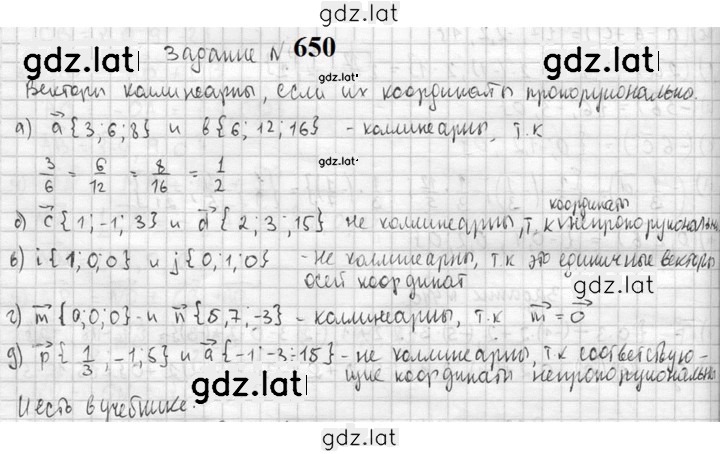 gdz.lat
gdz.lat gdz.lat
Задание № 650
gdz.lat
Векторы коллинеарны, если их координаты пропорциональны.
а) a {3; 6; 8} и b{6; 12; 16} - коллинеарны, т.к
3/6 = 6/12 = 8/16 = 1/2
gdz.lat
координаты
б) c {1; -1; 3} и d {2; 3; 15} не коллинеарны, т.к непропорциональны
в) i {1; 0; 0} и j {0; 1; 0} - не коллинеарны, т.к это единичные векторы
осей координат
г) m {0; 0; 0} и n {5, 7; -3} - коллинеарны, т.к m = 0
д) p { 1/3; -1; 5} и a {-1; -3; -15} - не коллинеарны, т.к соответствую-
щие координаты непропорциональны
gdz.lat gdz.lat
И есть в учебнике.
gdz.lat